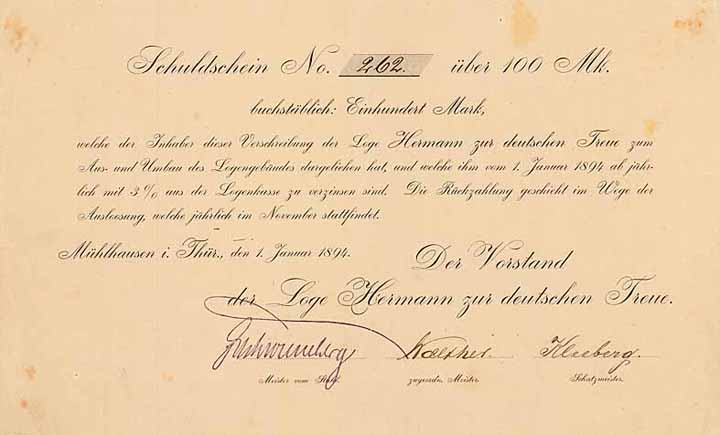 Schuldschein No. 262. über 100 Mk.
buchstäblich: Einhundert Mark,
welche der Inhaber dieser Verschreibung der Loge Hermann zur deutschen Treue zum
Aus- und Umbau des Logengebäudes dargeliehen hat, und welche ihm vom 1. Januar 1894 ab jähr-
lich mit 3% aus der Logenkasse zu verzinsen sind. Die Rückzahlung geschieht im Wege der
Ausloosung, welche jährlich im November stattfindet.
Mühlhausen i. Thür., den 1. Januar 1894. Der Vorstand
der Loge Hermann zur deutschen Treue.
Walther. Kleeberg.
Meister vom Stuhl. zugeordn. Meister. Schatzmeister.